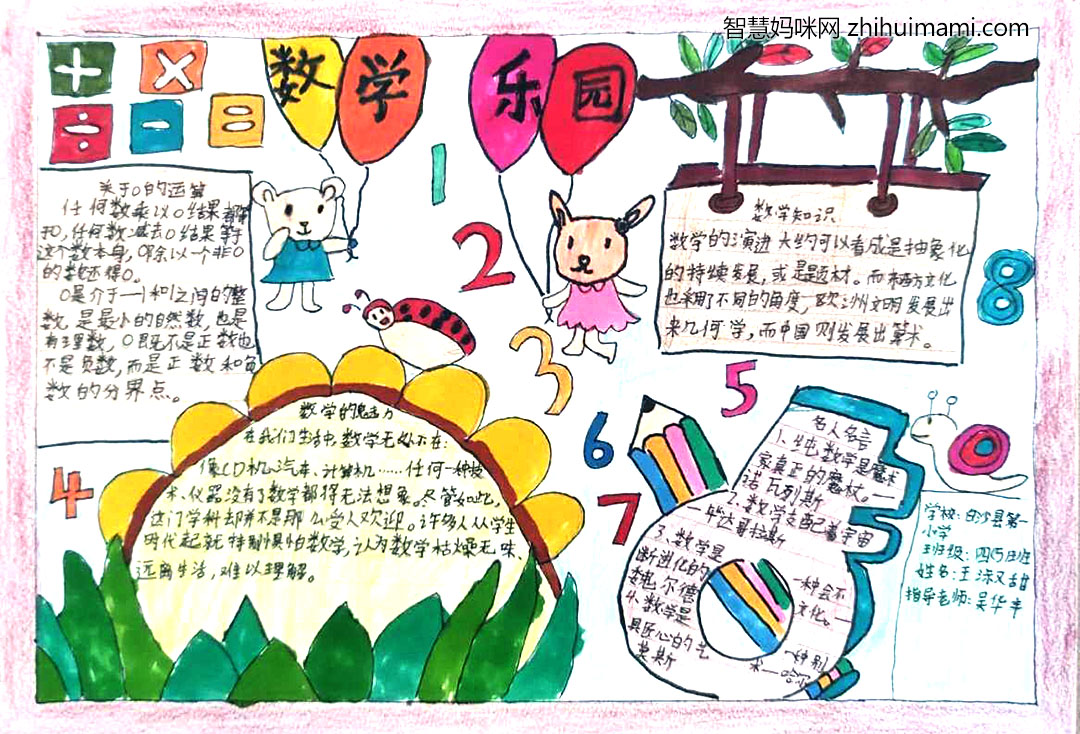 智慧妈咪网 zhihuimami.com
数学乐园
+ ×
÷ − =
1
2
3
4
5
6
7
8
关于0的运算
任何数乘以0结果都等
于0,任何数减去0结果等于
这个数本身,0除以一个非0
的数还得0。
0是介于-1和1之间的整
数,是最小的自然数,也是
有理数,0既不是正数也
不是负数,而是正数和负
数的分界点。
数学知识
数学的演进大约可以看成是抽象化
的持续发展,或是题材。而东西方文化
也采用了不同的角度,欧洲文明发展出
来几何学,而中国则发展出算术。
数学的魅力
在我们生活中,数学无处不在:
像CD机、汽车、计算机……任何一种技
术、仪器没有了数学都得无法想象。尽管如此,
这门学科却并不是那么受人欢迎。许多人从学生
时代起就特别惧怕数学,认为数学枯燥无味、
远离生活,难以理解。
名人名言
1、纯数学是魔术
家真正的魔杖。——
诺瓦列斯
2、数学支配着宇宙
—毕达哥拉斯
3、数学是一种会不
断进化的文化。—
魏尔德
4、数学是一种别
具匠心的艺术—哈尔
莫斯
学校:白沙县第一
小学
班级:四(5)班
姓名:王
指导老师:吴华丰